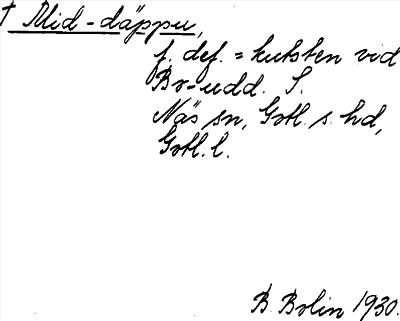 † Mid-däppu,
f. def. = kutsten vid
Br-udd. S.
Näs sn, Gotl. s. hd,
Gotl. l.
B Bolin 1930.